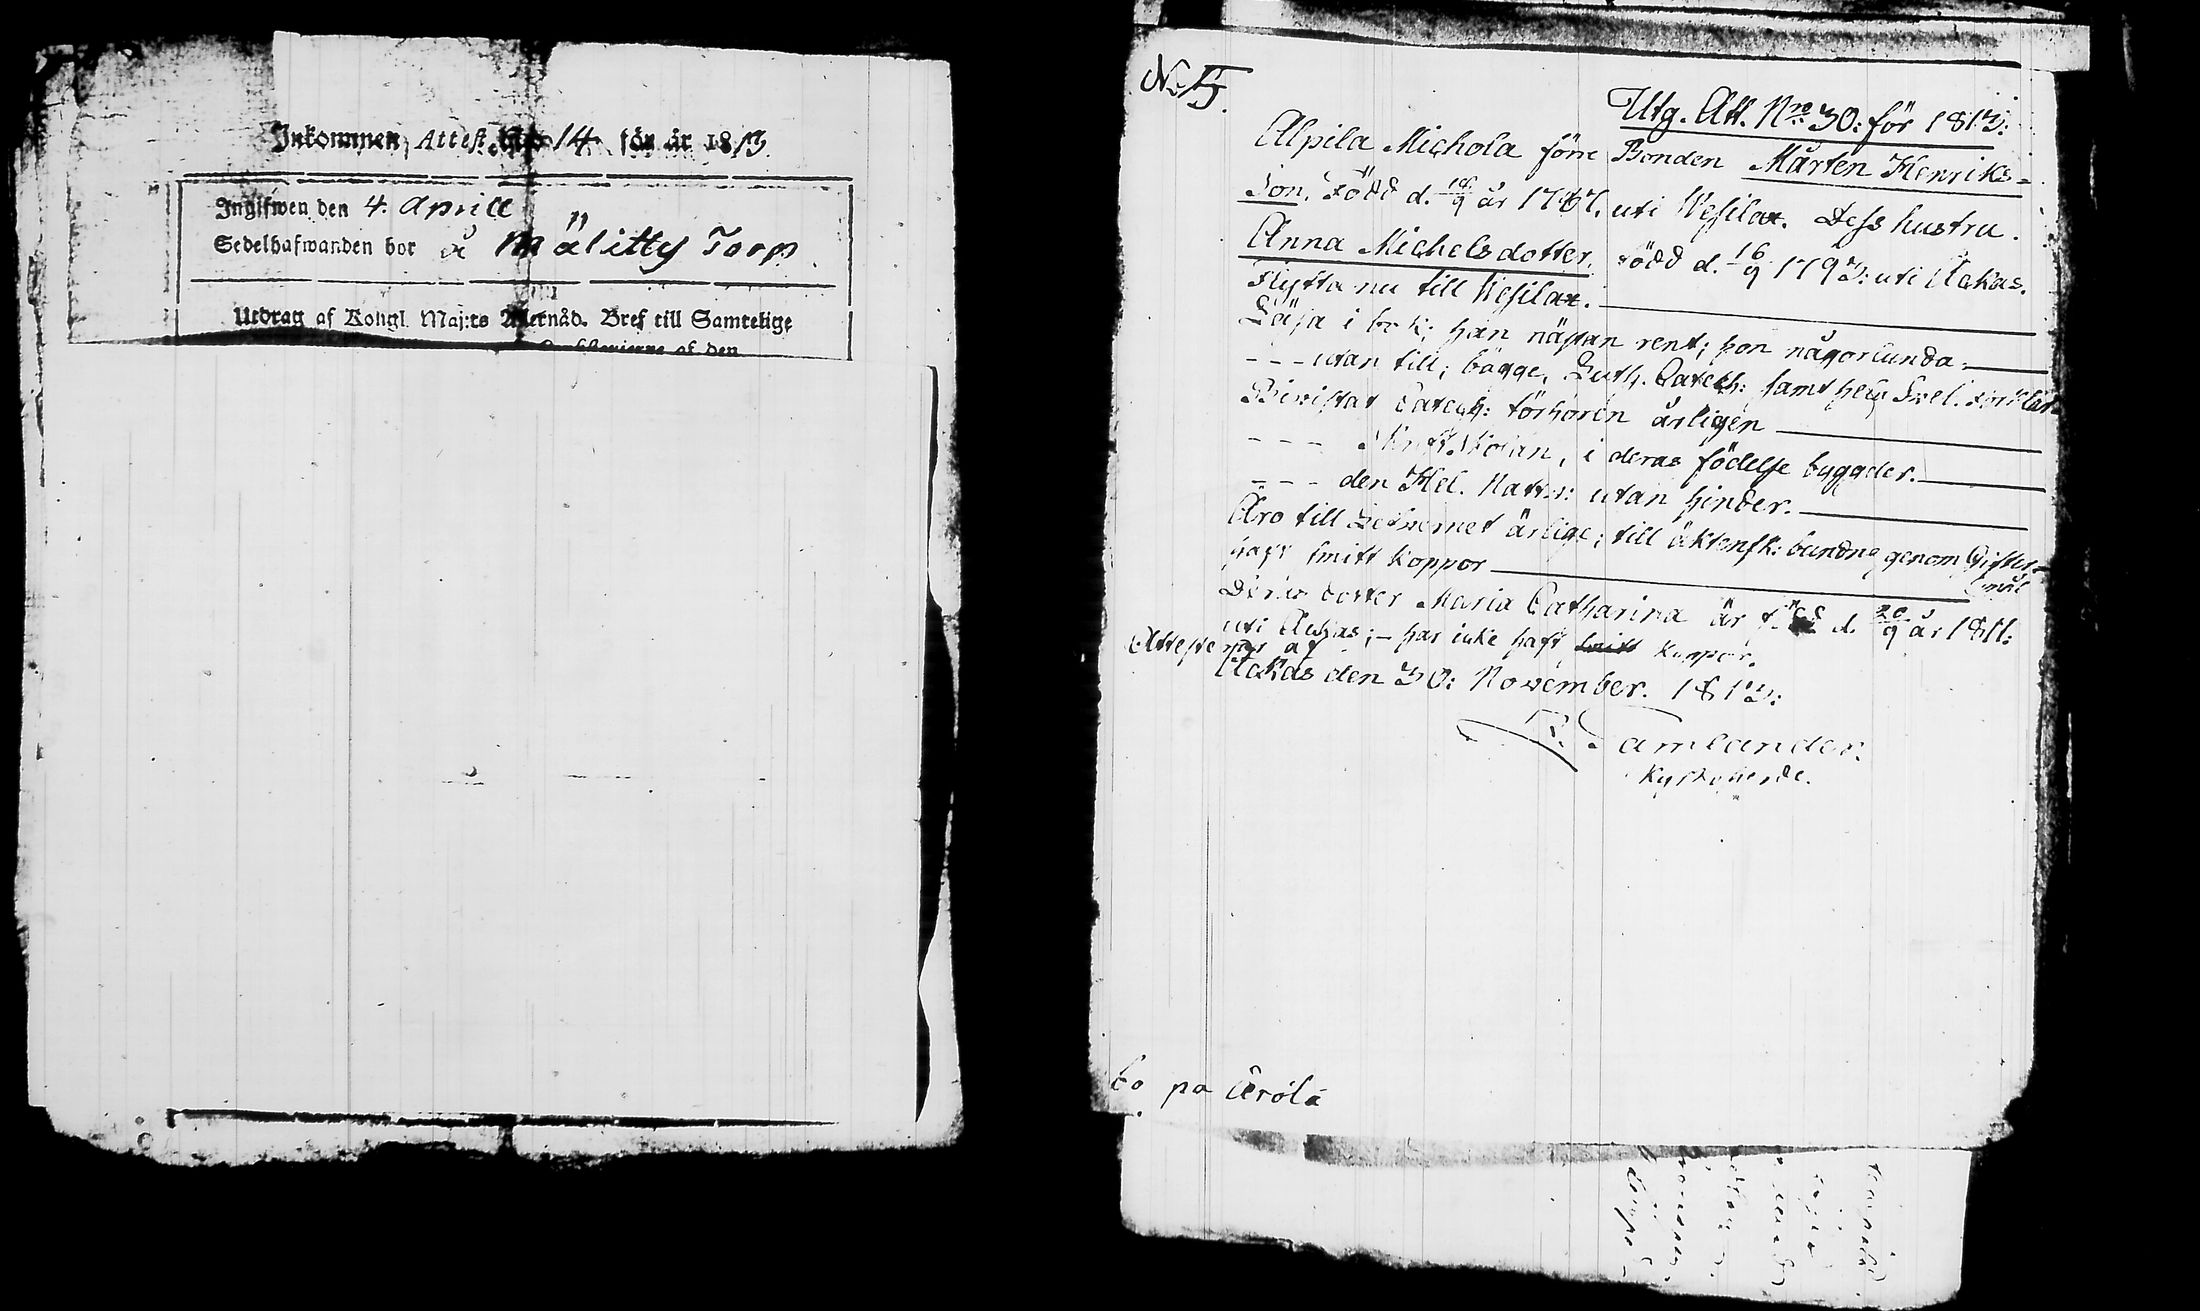 Inkommen Attest No 14 för år 1813.
Ingifwen den 4. Aprill
Sedelhafwanden bor å Mälitty Torp
Utdrag af Kongl. Maj:ts Allernåd. Bref till Samtelige
af den
No 5.
Utg. Att. Nr. 30: för 1813:
Alpila Michola förre Bonden Mårten Henriks=
Son, Född d. 18/9 år 1787. uti Wesilax. Dess hustru.
Anna Michelsdotter, född d. 16/9 1793: uti Ackas.
Flytta nu till Wesilax.
Läsa i bok; han nästan rent; hon någorlunda.
- - - utan till; bägge, Luth. Catech: samt
Bivistat Catech: förhören årligen
- - - i deras födelse bygder.
- - - den Hel. Nattv: utan hinder.
Äro till Lefvernet ärlige; till äktensk: bundne genom Gifter=
mål
haft smitt koppor
Deras dotter Maria Catharina är född d. 20/9 år 1811:
uti Ackas; - har icke haft koppor.
Attesteras af
Ackas den 30: November. 1813:
Tamlander.
Kyrkoherde.
bo pa Äröla